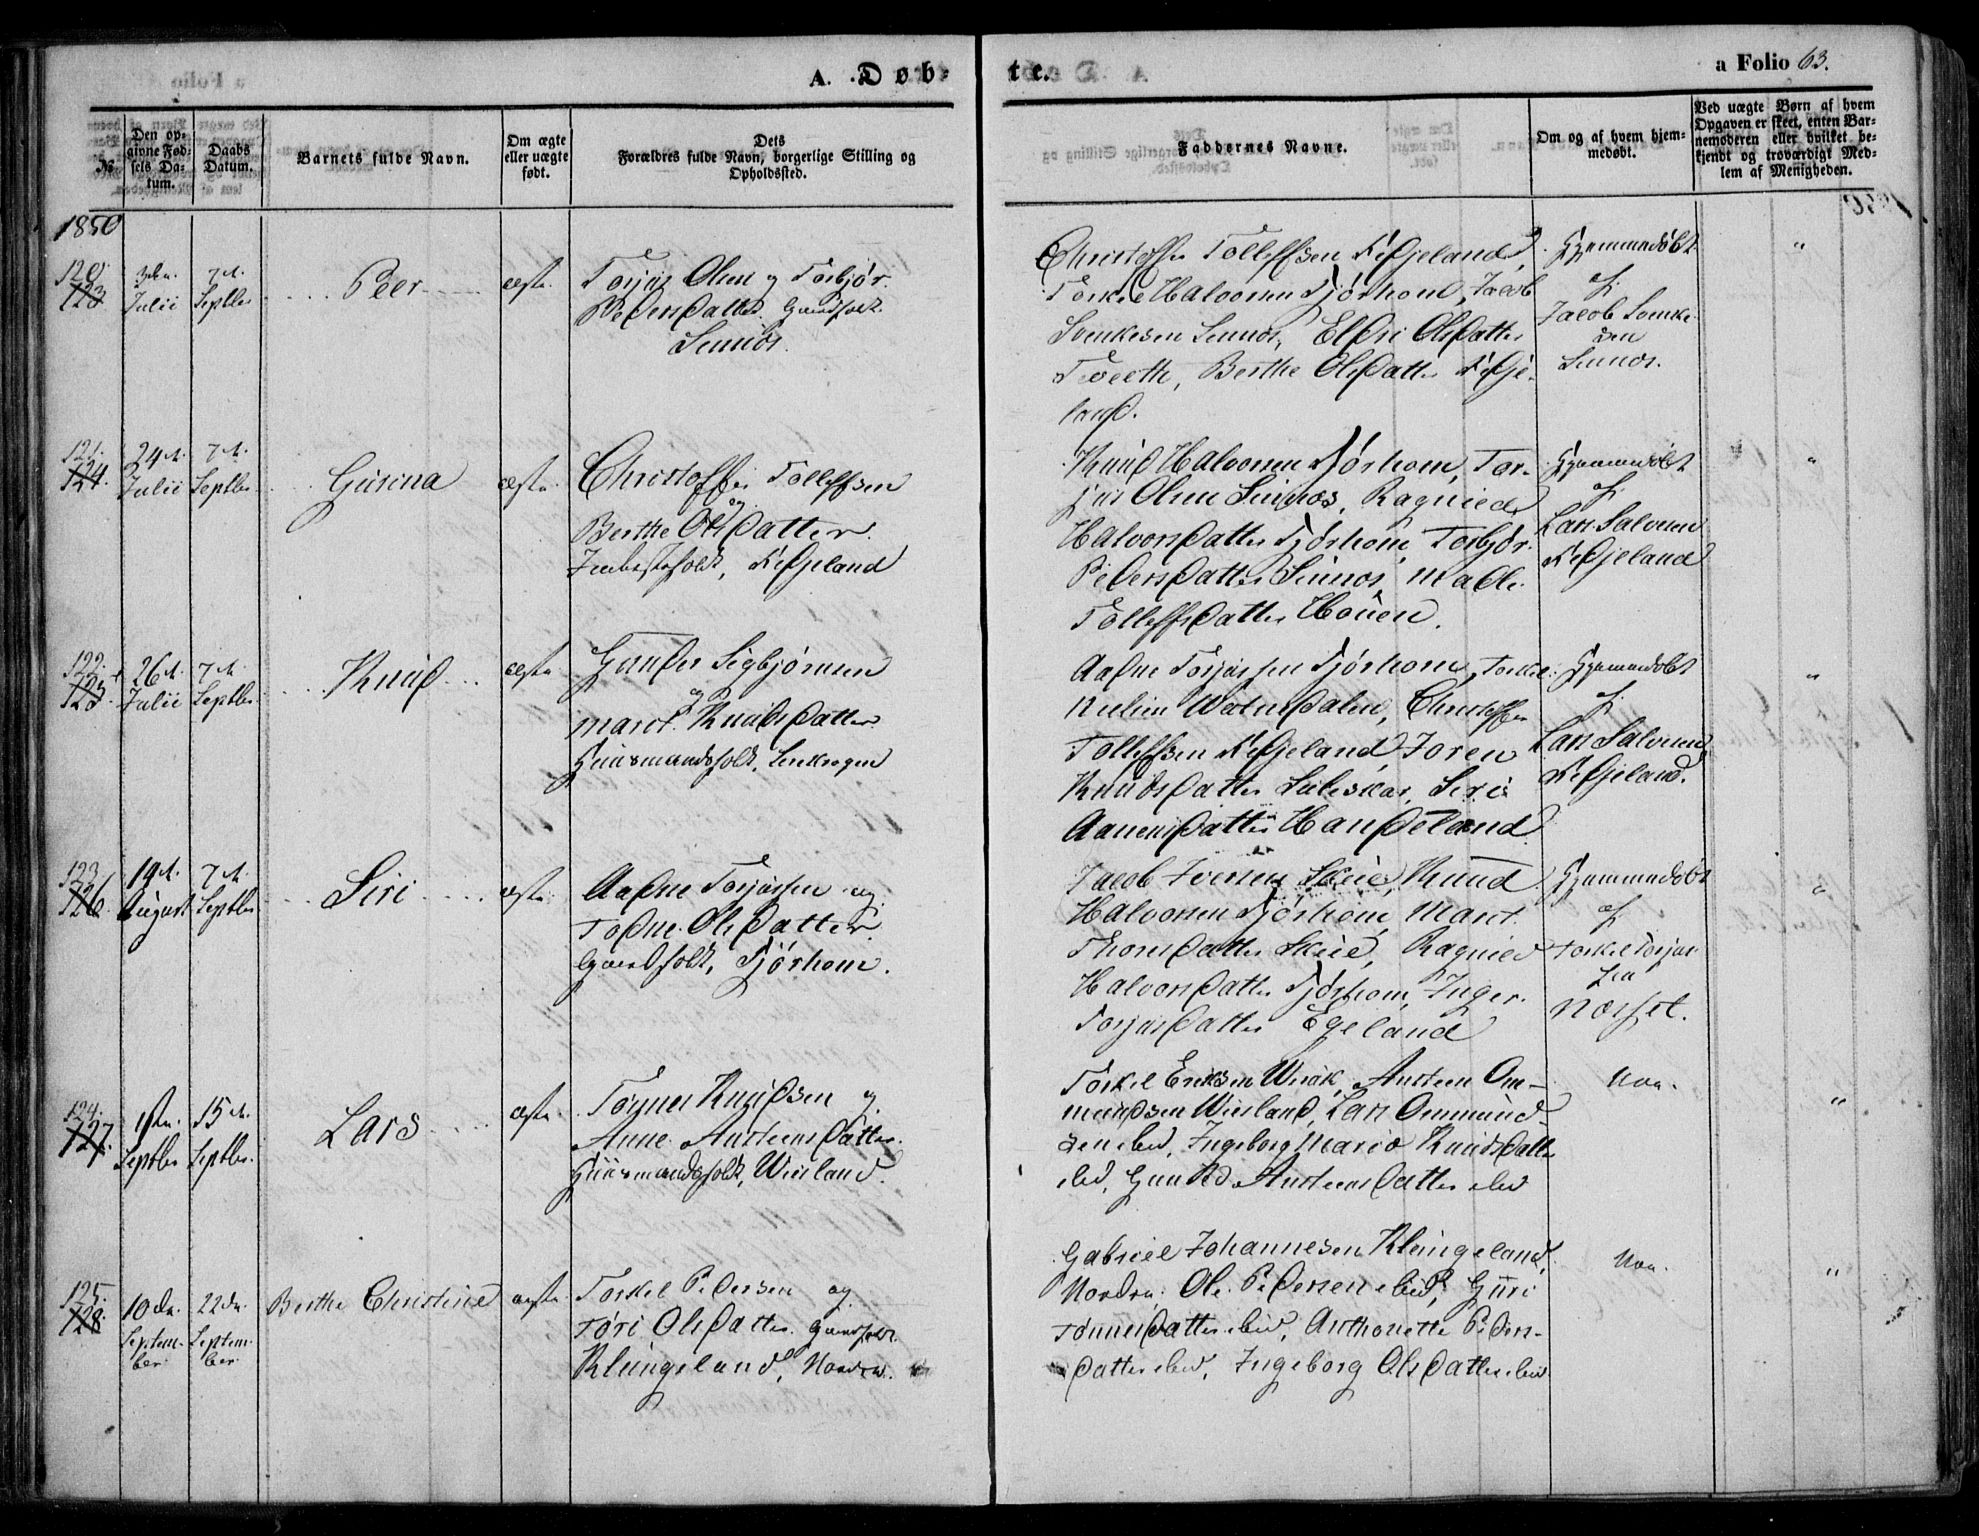 A. Døb-
te.
a Folio 63.
№
Den op-
givne Fød-
sels Da-
tum.
Daabs
Datum.
Barnets fulde Navn.
Om ægte
eller uægte
født.
Dets
Forældres fulde Navn, borgerlige Stilling og
Opholdssted.
Faddernes Navne.
Om og af hvem hjem-
medøbt.
Ved uægte Børn af hvem
Opgaven er skeet, enten Bar-
nemoderen eller hvilket be-
kjendt og troværdigt Med-
lem af Menigheden.
1850
120.
123
Julii
7de
Septbr
Peer
ægte
Torjus Olsen og Torbjør
Pedersdatter Gaardfolk
Sinnes
Christoffer Tollefsen Fidjeland
Torkel Halvorsen Tjørhom, Jacob
Sinnes, Eldri Olsdatter
Tveeth, Berthe Olsdatter Fidje-
land.
Hjemmedøbt
af
Jacob
sen
Sinnes.
"
121.
124.
24de
Julii
7de
Septbr
Gurina
ægte
Christoffer Tollefsen
og
Berthe Olsdatter
Fidjeland
Knud Halvorsen Tjørhom, Tor-
jus Olsen Sinnes, Ragnied
Halvorsdatter Tjørhom, Torbjør
Pedersdatter Sinnes, Malle
Tollefsdatter Houen.
Hjemmedøbt
af
Lars Salvesen
Fidjeland
"
122.
125
26de
Julii
7de
Septbr
Knud
ægte
Gunder Sigbjørnsen
og
Maret Knudsdatter
Huusmandsfolk,
Aadne Torjussen Tjørhom, Torkel
Nielsen Christoffer
Tollefsen Fidjeland, Joren
Knudsdatter Suleskar, Siri
Aanensdatter Handeland
Hjemmedøbt
af
Lars Salvesen
Fidjeland.
"
123
126
19de
August
7de
Septbr
Siri
ægte
Aadne Torjussen og
Todne Olsdatter
Gaardfolk, Tjørhom.
Jacob Iversen Skeie, Knud
Halvorsen Tjørhom, Maret
Thorsdatter Skeie, Ragnied
Halvorsdatter Tjørhom, Inger
Torjusdatter Egeland
Hjemmedøbt
af
Torkel Torjus-
sen
Næsset.
"
124.
127.
1ste
Septbr
15de
Septbr.
Lars
ægte
Tønnes Knudsen og
Anne Austeensdatter
Huusmandsfolk, Wiisland.
Torkel Eriksen Austeen Om-
mundsen Wiisland, Lars Ommund-
sen ibid, Ingeborg Maria Knudsdatter
ibid, Austeensdatter ibid
Nei.
"
125.
128.
10de
Septem-
ber
22de
Septem-
ber
Berthe Christine
ægte
Torkel Pedersen og
Tøri Olsdatter Gaardfolk
Klungeland, Nordre
Gabriel Johannesen Klungeland,
Nordre, Ole Pedersen ibid, Guri
Tønnesdatter ibid, Anthonette Peders-
datter ibid, Ingeborg Olsdatter ibid
Nei.
"